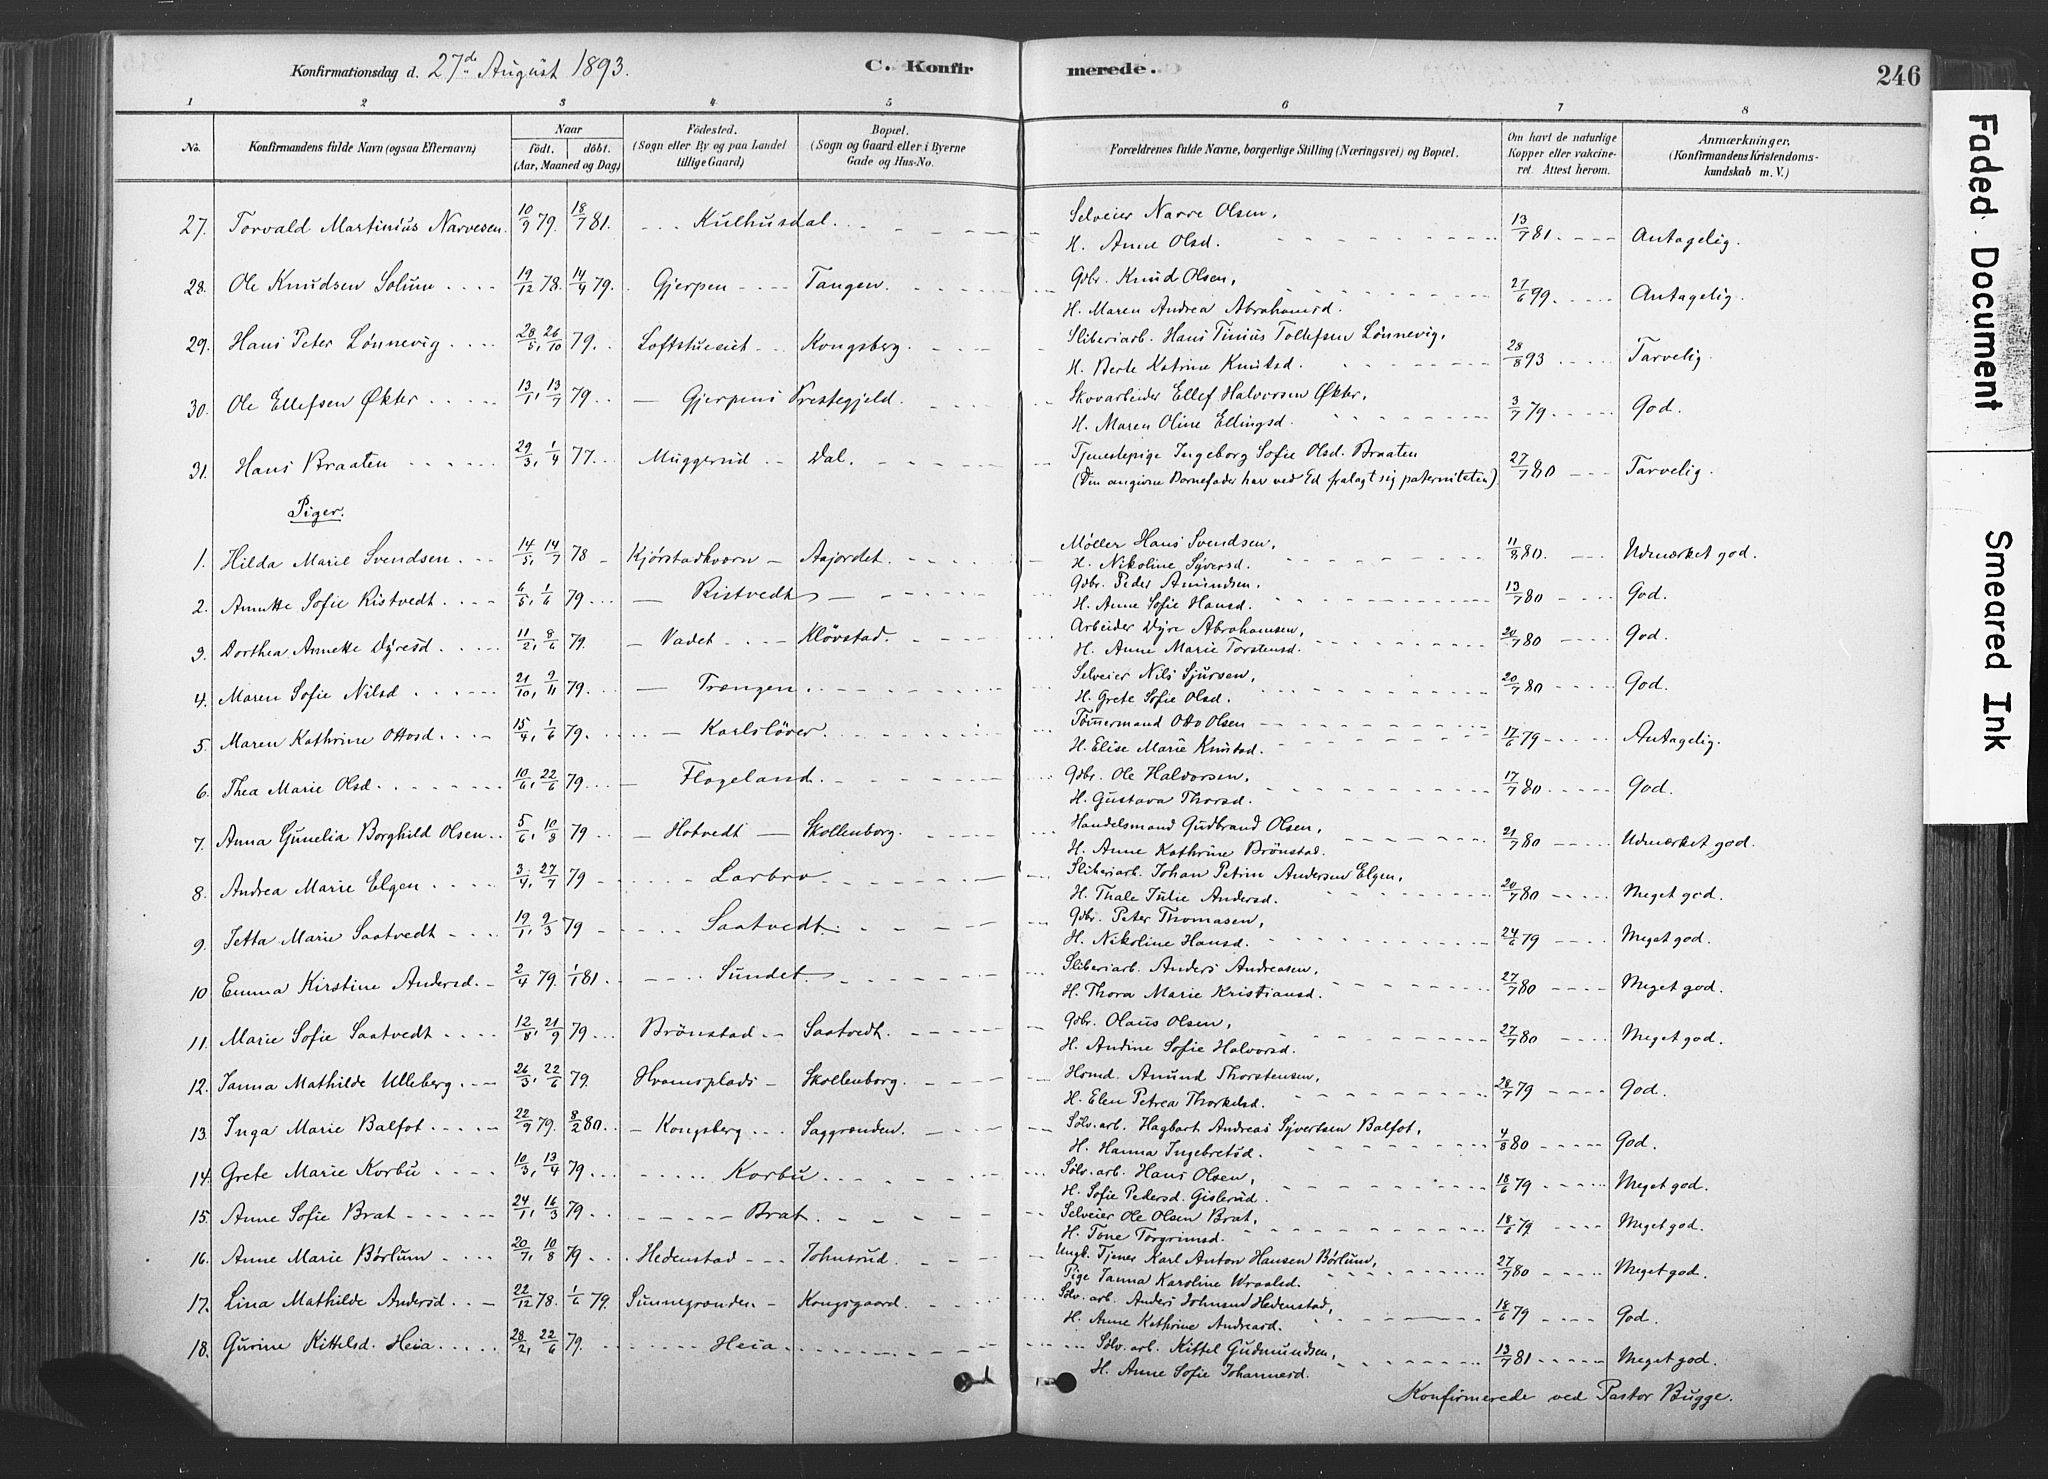 Konfirmationsdag d. 27de August 1893.
C. Konfirmerede.
246
1 2 3 4 5 6 7 8
No.
Konfirmandens fulde Navn (ogsaa Efternavn)
Naar
født. døbt.
(Aar, Maaned og Dag)
Fødested.
(Sogn eller By og paa Landet
tillige Gaard)
Bopæl.
(Sogn og Gaard eller i Byerne
Gade og Hus-No.
Forældrenes fulde Navne, borgerlige Stilling (Næringsvei) og Bopæl.
Om havt de naturlige
Kopper eller vakcine-
ret. Attest herom.
Anmærkninger.
(Konfirmandens Kristendoms-
kundskab m. V.)
27. Torvald Martinius Narvesen. 10/9 79. 18/7 81. Kulhusdal. Selveier Narve Olsen, 13/7 81. Antagelig.
H. Anne Olsd.
28. Ole Knudsen Solum 19/12 78. 14/4 79. Gjerpen Tangen. Gdbr. Knud Olsen, 27/6 99. Antagelig.
H. Maren Andrea Abrahamsd.
29. Hans Peter Lønnevig 28/5, 26/10 79. Loftstueeit Kongsberg. Sliberiarb. Hans Tinius Tollefsen Lønnevig, 28/8 93 Tarvelig.
H. Berte Katrine Knutsd.
30. Ole Ellefsen Økter 13/1, 13/7 79 Gjerpens Prestegjeld. Skovarbeider Ellef Halvorsen Økter, 3/7 79. God.
H. Maren Oline Ellingsd.
31. Hans Braaten 29/3, 1/4 77. Muggerud Dal. Tjenestepige Ingeborg Sofie Olsd. Braaten 27/7 80 Tarvelig.
(Den angivne Barnefader har ved Ed fralagt sig paterniteten)
Piger.
1. Hilda Marie Svendsen 14/5, 14/7 78 Kjørstadkværn Aajordet. Møller Hans Svendsen, 11/8 80. Udmærket god.
H. Nikoline Syversd.
2. Annette Sofie Ristvedt 6/5, 1/6 79 Ristvedt Gdbr. Peder Amundsen, 13/7 80 God.
H. Anne Sofie Hansd.
3. Dorthea Annette Dyresd 11/2, 8/6 79. Vadet Kløvstad. Arbeider Dyre Abrahamsen, 20/7 80 God.
H. Anne Marie Torstensd.
4. Maren Sofie Nilsd 21/10, 9/11 79. Trængen. Selveier Nils Sjursen, 20/7 80 God.
H. Grete Sofie Olsd.
5. Maren Kathrine Ottosd. 15/4, 1/6 79. Karlsløver Tømmermand Otto Olsen 17/6 79 Antagelig.
H. Elise Marie Knutsd.
6. Thea Marie Olsd. 10/6, 22/6 79. Flogeland. Gdbr. Ole Halvorsen, 17/7 80 God.
H. Gustava Thorsd.
7. Anna Gunelia Borghild Olsen 5/6, 10/8 79 Hotvedt Skollenborg. Handelsmand Gudbrand Olsen, 21/7 80 Udmærket god.
H. Anne Kathrine Brønstad.
8. Andrea Marie Elgen 3/4, 27/7 79 Larbro Sliberiarb. Johan Petrin Andersen Elgen, 20/7 80 Meget god.
H. Thale Julie Andersd.
9. Jetta Marie Saatvedt 19/1, 2/3 79 Saatvedt Gdbr. Peter Thomasen, 24/6 79 Meget god.
H. Nikoline Hansd.
10 Emma Kirstine Andersd. 2/4 79. 1/1 81. Sundet Sliberiarb. Anders Andreasen, 27/7 80 Meget god.
H. Thora Marie Kristiansd.
11. Marie Sofie Saatvedt 12/8, 21/9 79 Brønstad Saatvedt. Gdbr. Olaus Olsen, 27/7 80 Meget god.
H. Andine Sofie Halvorsd.
12. Janna Mathilde Ulleberg. 26/3, 22/6 79. Hvamsplads Skollenborg. Hdmd. Amund Thorstensen, 28/7 79 God.
H. Elen Petrea Thorkelsd.
13. Inga Marie Balfot 22/9 79. 8/2 80. Kongsberg Saggrenden. Sølv. arb. Hagbart Andreas Syvertsen Balfot, 4/8 80 God.
H. Hanna Ingebretsd.
14. Grete Marie Korbu 10/3, 13/4 79 Korbu Sølv. arb. Hans Olsen, 18/6 79 Meget god.
H. Sofie Pedersd. Gislerud.
15. Anne Sofie Brat 24/1, 16/3 79 Brat. Selveier Ole Olsen Brat, 18/6 79 Meget god.
H. Tone Torgrimsd.
16. Anne Marie Børlum 20/7, 10/8 79 Hedenstad Johnsrud. Ungk. Tjener Karl Anton Hansen Børlum, 27/7 80 Meget god.
Pige Janna Karoline Wraalsd.
17. Lina Mathilde Andersd. 22/12 78. 1/6 79. Sunnegrænden Kongsgaard. Sølv. arb. Anders Johnsend Hedenstad, 18/6 79 God.
H. Anne Kathrine Andreasd.
18. Gurine Kittelsd. Heia 28/2, 22/6 79. Heia. Sølv. arb. Kittel Gudmundsen, 13/7 81 Meget god.
H. Anne Sofie Johannesd.
Konfirmerede ved Pastor Bugge.
Faded Document
Smeared Ink